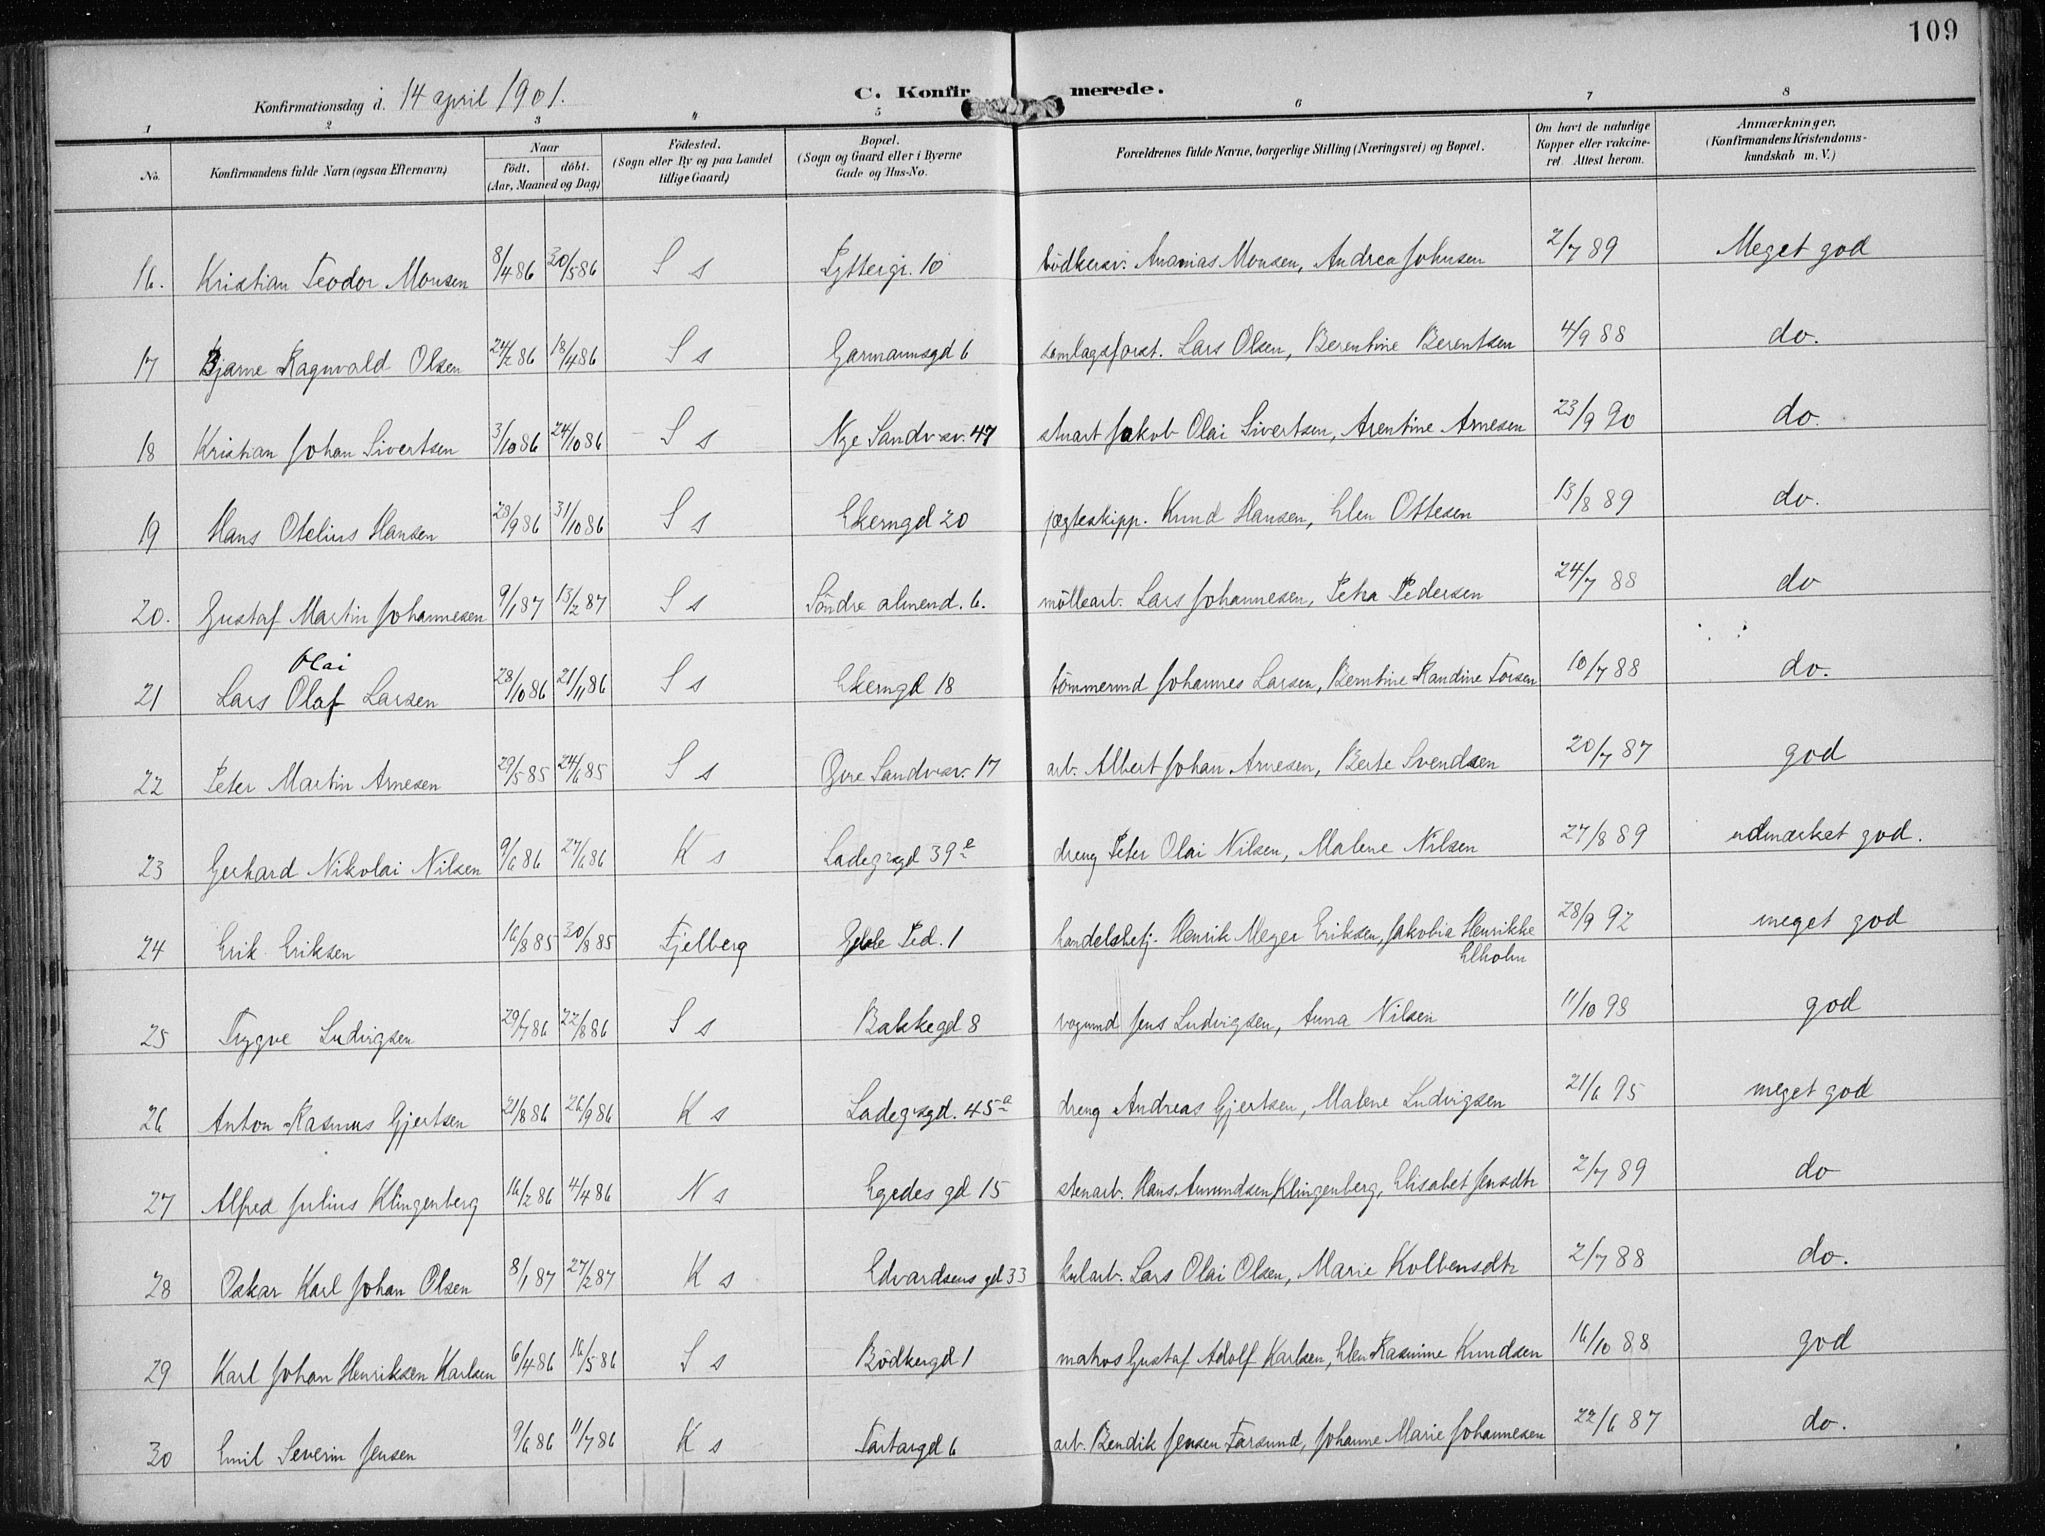 109
Konfirmationsdag d. 14 april 1901.
C. Konfirmerede.
1 2 3 4 5 6 7 8
No. Konfirmandens fulde Navn (ogsaa Efternavn) Naar födt. döbt. (Aar, Maaned og Dag) Födested. (Sogn eller By og paa Landet tillige Gaard) Bopæl. (Sogn og Gaard eller i Byerne Gade og Hus-No. Forældrenes fulde Navne, borgerlige Stilling (Næringsvei) og Bopæl. Om havt de naturlige Kopper eller vakcineret. Attest herom. Anmærkninger. (Konfirmandens Kristendomskundskab m. V.)
16. Kristian Teodor Monsen 8/4 86 30/5 86 S s Pyttergr. 10 bödkersv. Ananias Monsen, Andrea Johnsen 2/7 89 Meget god
17 Bjarne Ragnvald Olsen 24/2 86 18/4 86 S s Garmannsgd 6 samlagsforst. Lars Olsen, Berentine Berentsen 4/9 88 do.
18 Kristian Johan Sivertsen 3/10 86 24/10 86 S s Nye Sandvsv. 47 stuart Jakob Olai Sivertsen, Arentine Arnesen 23/9 90 do.
19 Hans Otelius Hansen 23/9 86 31/10 86 S s Ekerngd 20 jægteskipp. Knud Hansen, Elen Ottesen 13/8 89 do.
20. Gustaf Martin Johannesen 9/1 87 13/2 87 S s Söndre almend. 6. möllearb. Lars Johannesen, Petra Pedersen 24/7 88 do
Olai
21 Lars Olaf Larsen 28/10 86 21/11 86 S s Ekerngd 18 tömmermd Johannes Larsen, Berntine Randine Torsen 10/7 88 do.
22 Peter Martin Arnesen 29/5 85 24/6 85 S s Övre Sandvsv. 17 arb. Albert Johan Arnesen, Berte Svendsen 20/7 87 god
23 Gerhard Nikolai Nilsen 9/6 86 27/6 86 K s Ladegrsgd 39 e dreng Peter Olai Nilsen, Malene Nilsen 27/8 89 udmærket god.
24 Erik Eriksen 16/8 85 30/8 85 Fjelberg 1 handelsbetj. Henrik Meyer Eriksen, Jakobia Henrikke 28/9 92 meget god
Elholm
25 Trygve Ludvigsen 29/7 86 22/8 86 S s Bakkegd 8 vognmd Jens Ludvigsen, Anna Nilsen 11/10 93 god
26 Anton Rasmus Gjertsen 21/8 86 26/9 86 K s Ladegrsgd. 45 a dreng Andreas Gjertsen, Malene Ludvigsen 21/6 95 meget god
27 Alfred Julius Klingenberg 16/2 86 4/4 86 N s Egedes gd 15 stenarb. Hans Amundsen Klingenberg, Elisabet Jensdtr 2/7 89 do
28 Oskar Karl Johan Olsen 8/1 87 27/2 87 K s Edvardsens gd 33 kularb. Lars Olai Olsen, Marie Kolbensdtr 2/7 88 do.
29 Karl Johan Henriksen Karlsen 6/4 86 16/5 86 S s Bödkergd 1 matros Gustaf Adolf Karlsen, Elen Rasmine Knudsen 16/10 88 god
30 Emil Severin Jensen 9/6 86 11/7 86 K s Tartargd 6 arb. Bendik Jensen Farsund, Johanne Marie Johannesen 22/6 87 do.